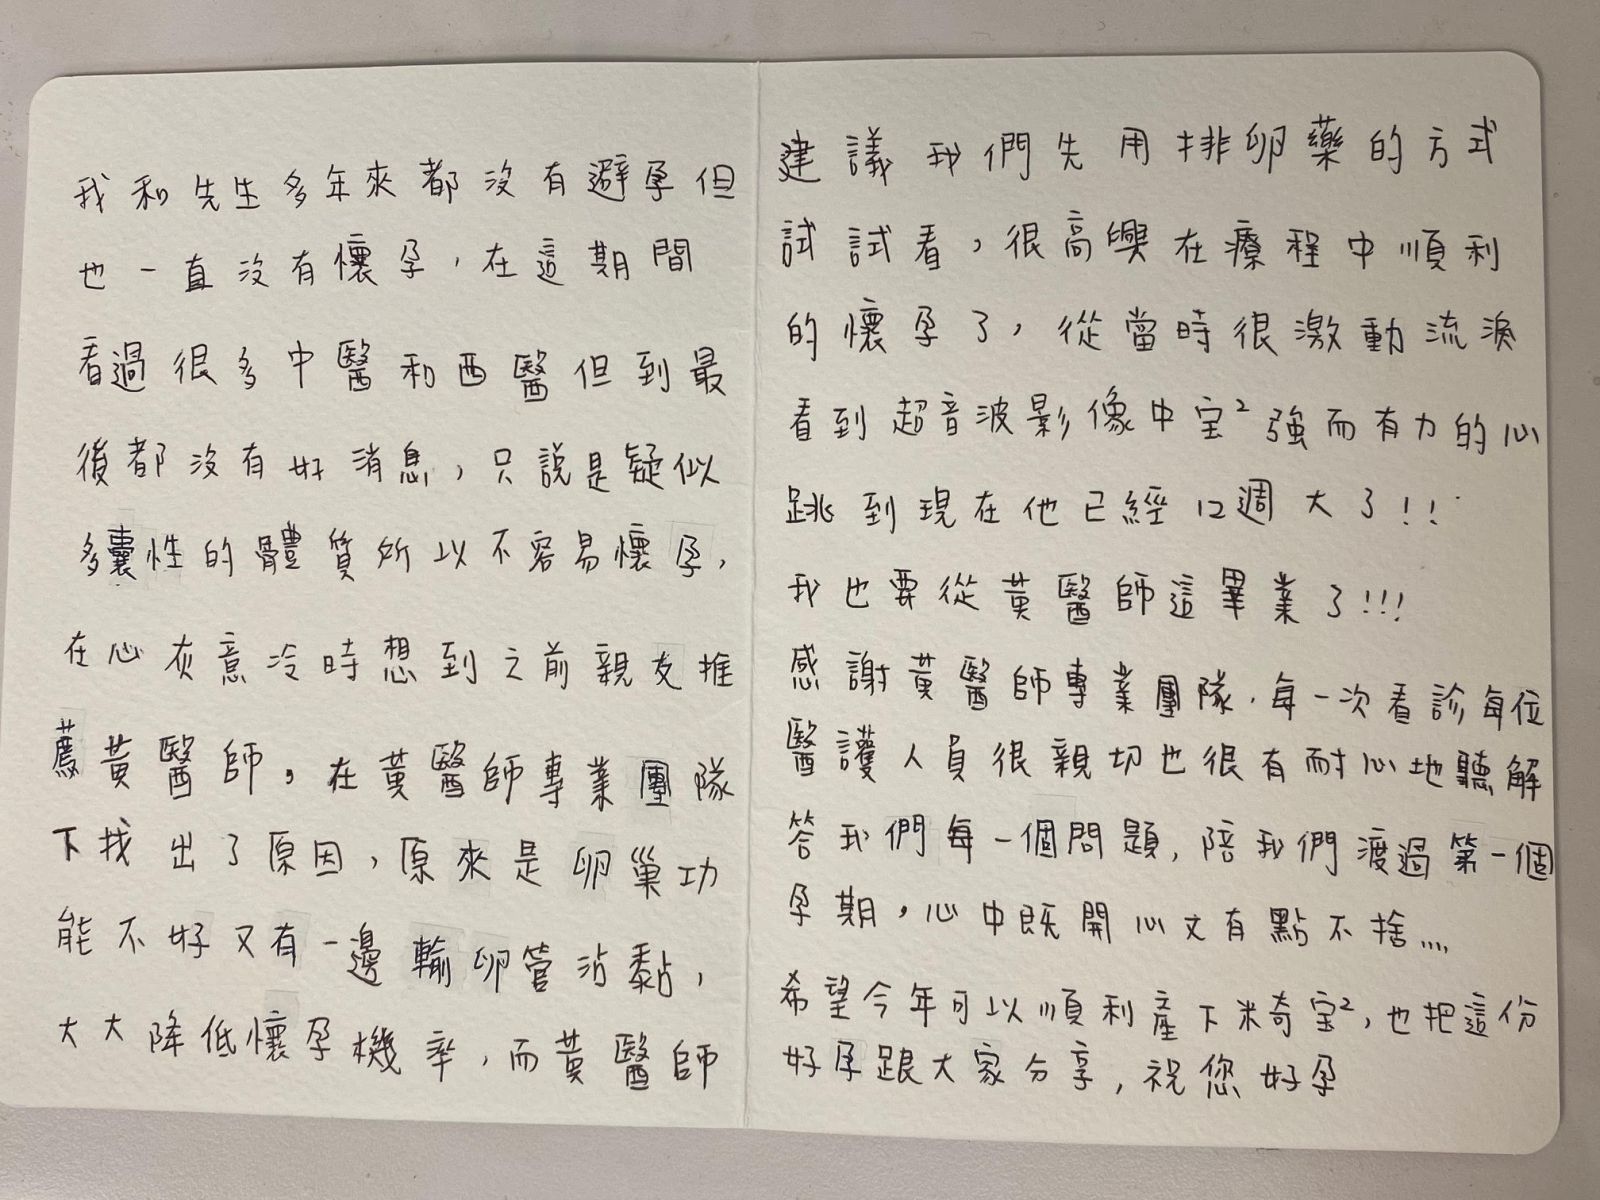 我和先生多年來都沒有避孕但
也一直沒有懷孕，在這期間
看過很多中醫和西醫但到最
後都沒有好消息，只說是疑似
多囊性的體質所以不容易懷孕，
在心灰意冷時想到之前親友推
薦黃醫師。在黃醫師專業團隊
下找出了原因，原來是卵巢功
能不好又有一邊輸卵管沾黏，
大大降低懷孕機率，而黃醫師
建議我們先用排卵藥的方式
試試看，很高興在療程中順利
的懷孕了，從當時很激動流淚
看到超音波影像中宝² 強而有力的心
跳到現在他已經12週大了!!
我也要從黃醫師這畢業了!!!
感謝黃醫師專業團隊，每一次看診每位
醫護人員很親切也很有耐心地聽解
答我們每一個問題，陪我們渡過第一個
孕期，心中既開心又有點不捨....
希望今年可以順利產下米奇宝²，也把這份
好孕跟大家分享，祝您好孕